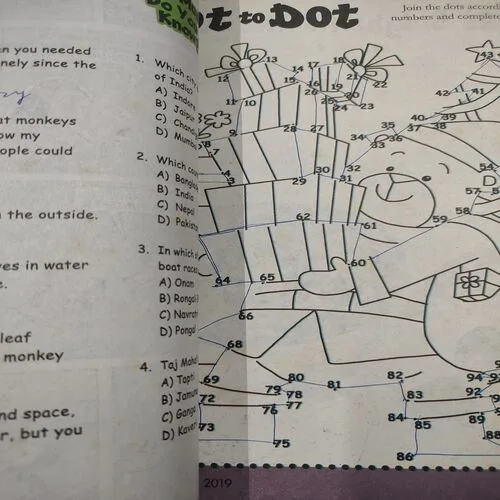 en you needed
nely since the
at monkeys
ow my
ople could
n the outside.
ves in water
e.
leaf
monkey
nd space,
r, but you
Do yo
Know
1. Which city
of India?
A) Indore
B) Jaipur
C) Chand
D) Mumba
2. Which cou
A) Bangla
B) India
C) Nepal
D) Pakista
3. In which
boat race
A) Onam
B) Rongali
C) Navrat
D) Pongal
4. Taj Maha
A) Tapti
B) Jamun
C) Ganga
D) Kaver
ot to Dot
Join the dots accord
numbers and complete
13
14
17
18
43
12
15
16
19
21
22
11
10
20
42
41
26
25
24
23
40
39
9
28
27
35
37
38
34
36
8
33
7
30
32
54
4
3
29
31
57
62
61
59
58
60
64
65
66
68
69
80
81
82
94
79
78
83
92
72
76
77
73
84
85
89
75
88
86
2019